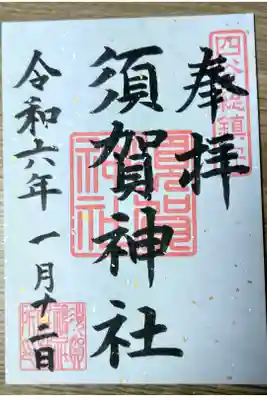 四谷総鎮守
奉拝
須賀神社
令和六年 一月十二日